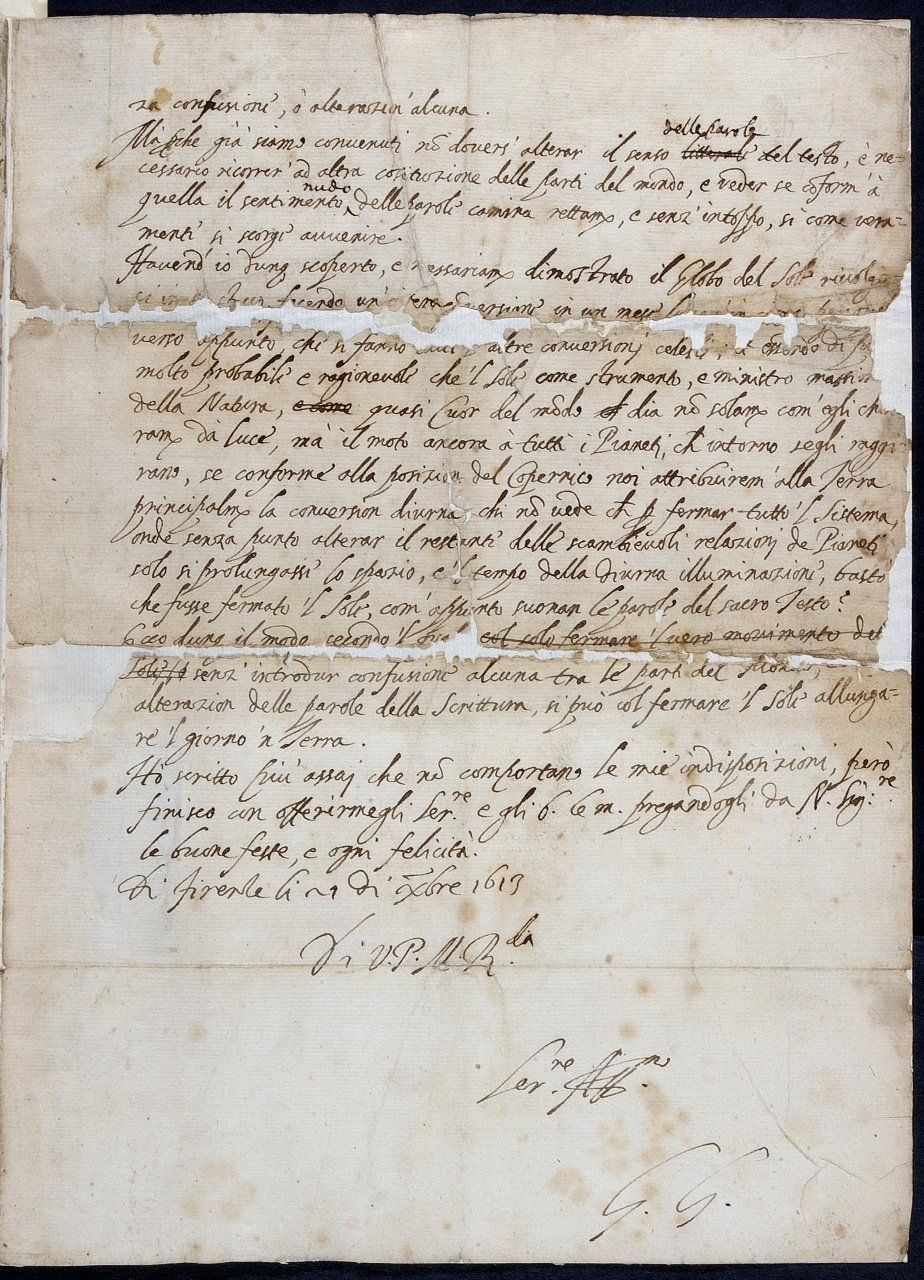 za confusione, ò alterazion' alcuna.
Mà perche già siamo convenuti nõ doversi alterar il senso litterale delle parole del testo, è ne-
cessario ricorrer' ad altra costituzione delle parti del mondo, e veder se cõform' à
quella il sentimento nudo delle parole camina rettamẽ, e senz' intoppo, si come vera-
mente si scorge avvenire.
Havend' io dunq scoperto, e necessariamẽ dimostrato il Globo del Sole rivolger
facendo un' intera conversione in un mese
verso appunto, che si fanno altre conversionj celesti; essendo di
molto probabile e ragionevole che 'l Sole come strumento, e ministro massimo
della Natura, e come quasi Cuor del mõdo dia nõ solamẽ com' egli chia
ramẽ dà luce, mà il moto ancora à tutti i Pianeti, ch' intorno segli raggi-
rano, se conforme alla posizion del Copernico noi attribuirem' alla Terra
principalmẽ la conversion diurna, chi nõ vede ch p fermar tutto 'l Sistema,
onde senza punto alterar il restante delle scambievoli relazionj de Pianeti
solo si prolungasse lo spazio, e 'l tempo della diurna illuminazione, bastò
che fusse fermato 'l Sole, com' appunto suonan le parole del sacro Testo?
Ecco dunq il modo secondo 'l col solo fermare 'l vero movimento del
Sole senz' introdur confusione alcuna tra le parti del Mondo,
alterazion delle parole della Scrittura, si può col fermare 'l Sole allunga-
re 'l giorno 'n Terra.
Hò scritto più assaj che nõ comportano le mie indisposizioni, però
finisco con offerirmegli Ser.re e gli b. le m. pregandogli da N. Sig.re
le buone feste, e ogni felicità.
Di Firenze li 21 di Xbre 1613
Di V.P.M.R.da
Ser.re Aff.mo
G. G.